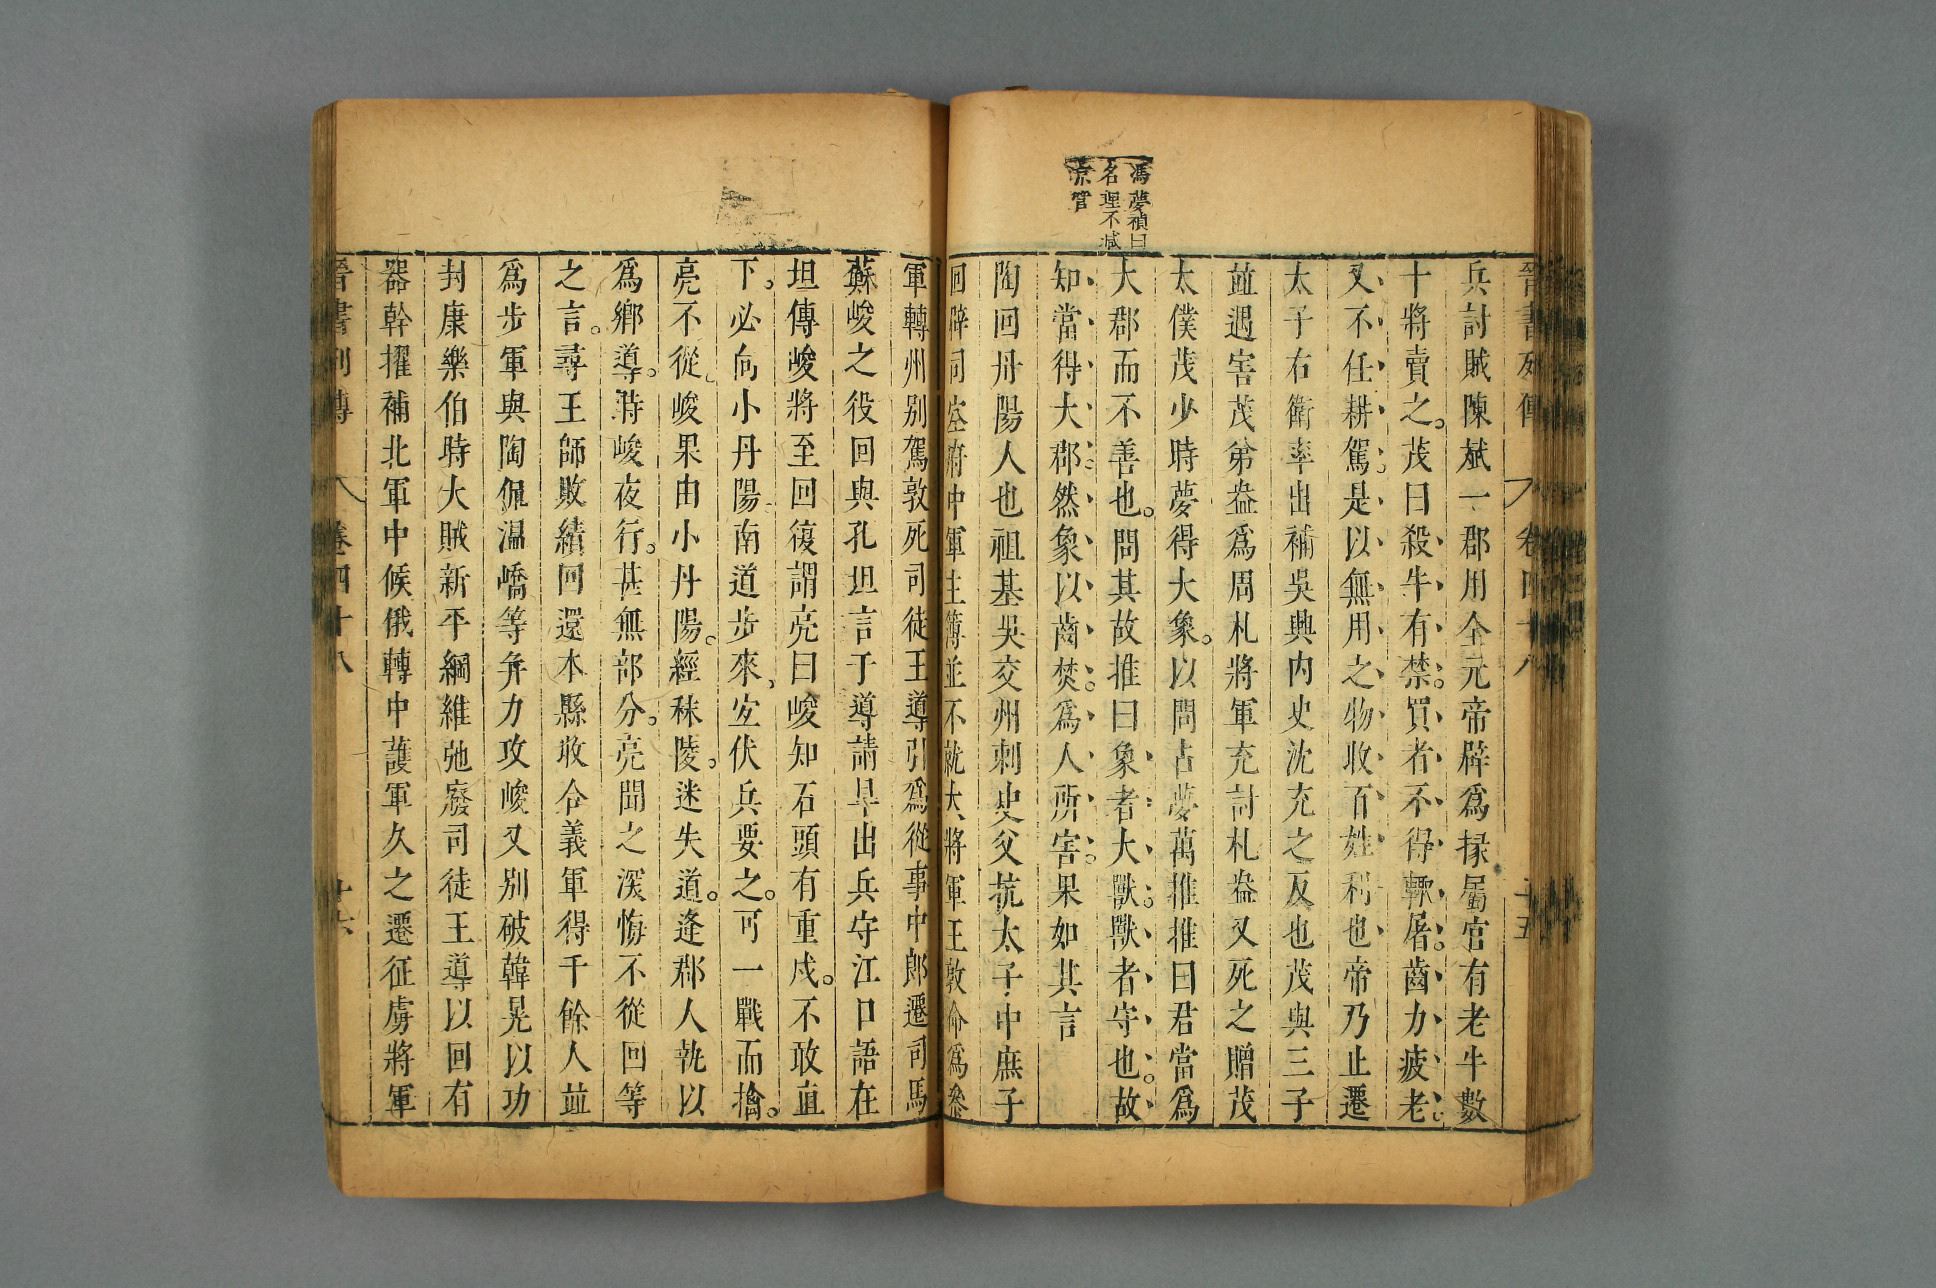 馮夢禎曰
名理不減
京管
晉書列傳 卷四十八 十五
兵討賊陳斌一郡用全元帝辟爲掾屬官有老牛數
十將賣之。茂曰殺牛有禁。買者不得輙屠。齒力疲老。
又不任耕駕。是以無用之物收百姓利也帝乃止遷
太子右衛率出補吳興內史沈充之反也茂與三子
並遇害茂弟盎爲周札將軍充討札盎又死之贈茂
太僕茂少時夢得大象。以問占夢萬推推曰君當爲
大郡而不善也。問其故推曰象者大獸。獸者守也。故
知當得大郡然象以齒焚。爲人所害。果如其言
陶回丹陽人也祖基吳交州刺史父抗太子中庶子
回辟司空府中軍主簿並不就大將軍王敦命爲參
軍轉州別駕敦死司徒王導引爲從事中郎遷司馬
蘇峻之役回與孔坦言于導請早出兵守江口語在
坦傳峻將至回復謂亮曰峻知石頭有重戍。不敢直
下。必向小丹陽南道步來。宜伏兵要之。可一戰而擒。
亮不從。峻果由小丹陽。經秣陵。迷失道。逢郡人執以
爲鄉導。時峻夜行。甚無部分。亮聞之深悔不從回等
之言。尋王師敗績回還本縣收合義軍得千餘人並
爲步軍與陶侃溫嶠等弁力攻峻又別破韓晃以功
封康樂伯時大賊新平綱維弛廢司徒王導以回有
器幹擢補北軍中候俄轉中護軍久之遷征虜將軍
晉書列傳 卷四十八 十六